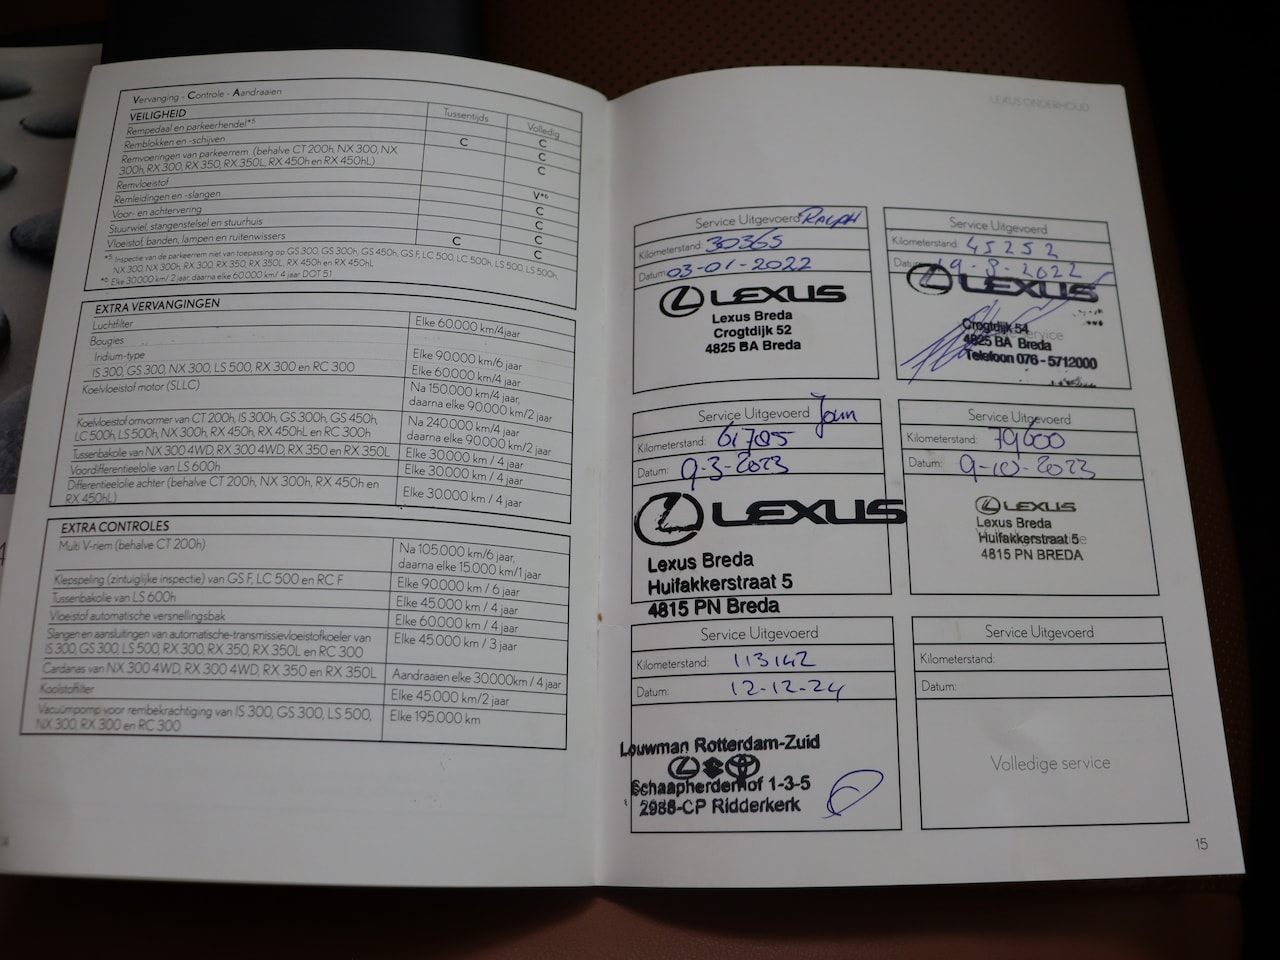 Vervanging - Controle - Aandraaien
VEILIGHEID
Tussentijds
Volledig
Rempedaal en parkeerhendel*5
C
Remblokken en -schijven
C
C
Remvoeringen van parkeerrem (behalve CT 200h, NX 300, NX
300h, RX 300, RX 350, RX 350L, RX 450h en RX 450hL)
C
Remvloeistof
V*6
Remleidingen en -slangen
C
Voor- en achtervering
C
Stuurwiel, stangenstelsel en stuurhuis
C
Vloeistof, banden, lampen en ruitenwissers
C
C
*5 Inspectie van de parkeerrem niet van toepassing op GS 300, GS 300h, GS 450h, GS F, LC 500, LC 500h, LS 500, LS 500h,
NX 300, NX 300h, RX 300, RX 350, RX 350L, RX 450h en RX 450hL
*6 Elke 30.000 km/ 2 jaar, daarna elke 60.000 km/ 4 jaar DOT 5.1
EXTRA VERVANGINGEN
Luchtfilter
Elke 60.000 km/4jaar
Bougies
Iridium-type
Elke 90.000 km/6 jaar
IS 300, GS 300, NX 300, LS 500, RX 300 en RC 300
Elke 60.000 km/4 jaar
Koelvloeistof motor (SLLC)
Na 150.000 km/4 jaar,
daarna elke 90.000 km/2 jaar
Koelvloeistof omvormer van CT 200h, IS 300h, GS 300h, GS 450h,
LC 500h, LS 500h, NX 300h, RX 450h, RX 450hL en RC 300h
Na 240.000 km/4 jaar
daarna elke 90.000 km/2 jaar
Tussenbakolie van NX 300 4WD, RX 300 4WD, RX 350 en RX 350L
Elke 30.000 km / 4 jaar
Voordifferentieelolie van LS 600h
Elke 30.000 km / 4 jaar
Differentieelolie achter (behalve CT 200h, NX 300h, RX 450h en
RX 450hL)
Elke 30.000 km / 4 jaar
EXTRA CONTROLES
Multi V-riem (behalve CT 200h)
Na 105.000 km/6 jaar,
daarna elke 15.000 km/1 jaar
Klepspeling (zintuiglijke inspectie) van GS F, LC 500 en RC F
Elke 90.000 km / 6 jaar
Tussenbakolie van LS 600h
Elke 45.000 km / 4 jaar
Vloeistof automatische versnellingsbak
Elke 60.000 km / 4 jaar
Slangen en aansluitingen van automatische-transmissievloeistofkoeler van
IS 300, GS 300, LS 500, RX 300, RX 350, RX 350L en RC 300
Elke 45.000 km / 3 jaar
Cardanas van NX 300 4WD, RX 300 4WD, RX 350 en RX 350L
Aandraaien elke 30.000km / 4 jaar
Koolstoffilter
Elke 45.000 km/2 jaar
Vacuümpomp voor rembekrachtiging van IS 300, GS 300, LS 500,
NX 300, RX 300 en RC 300
Elke 195.000 km
LEXUS ONDERHOUD
Service Uitgevoerd RALPH
Kilometerstand: 30365
Datum: 03-01-2022
LEXUS
Lexus Breda
Crogtdijk 52
4825 BA Breda
Service Uitgevoerd
Kilometerstand: 45252
Datum: 19-8-2022
LEXUS
Crogtdijk 54
4825 BA Breda
Telefoon 076-5712000
Service Uitgevoerd
Kilometerstand: 61705
Datum: 9-3-2023
LEXUS
Lexus Breda
Huifakkerstraat 5
4815 PN Breda
Service Uitgevoerd
Kilometerstand: 79600
Datum: 9-10-2023
LEXUS
Lexus Breda
Huifakkerstraat 5
4815 PN BREDA
Service Uitgevoerd
Kilometerstand: 113142
Datum: 12-12-24
Louwman Rotterdam-Zuid
Schaapherderhof 1-3-5
2988-CP Ridderkerk
Service Uitgevoerd
Kilometerstand:
Datum:
Volledige service
15